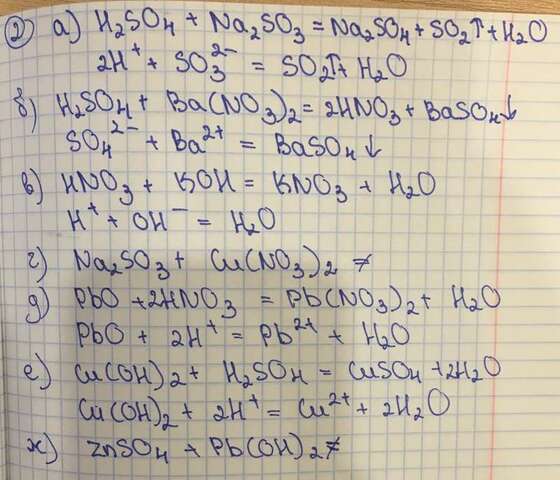 ② а) H₂SO₄ + Na₂SO₃ = Na₂SO₄ + SO₂↑ + H₂O
2H⁺ + SO₃²⁻ = SO₂↑ + H₂O
б) H₂SO₄ + Ba(NO₃)₂ = 2HNO₃ + BaSO₄↓
SO₄²⁻ + Ba²⁺ = BaSO₄↓
в) HNO₃ + KOH = KNO₃ + H₂O
H⁺ + OH⁻ = H₂O
г) Na₂SO₃ + Cu(NO₃)₂ ≠
д) PbO + 2HNO₃ = Pb(NO₃)₂ + H₂O
PbO + 2H⁺ = Pb²⁺ + H₂O
е) Cu(OH)₂ + H₂SO₄ = CuSO₄ + 2H₂O
Cu(OH)₂ + 2H⁺ = Cu²⁺ + 2H₂O
ж) ZnSO₄ + Pb(OH)₂ ≠